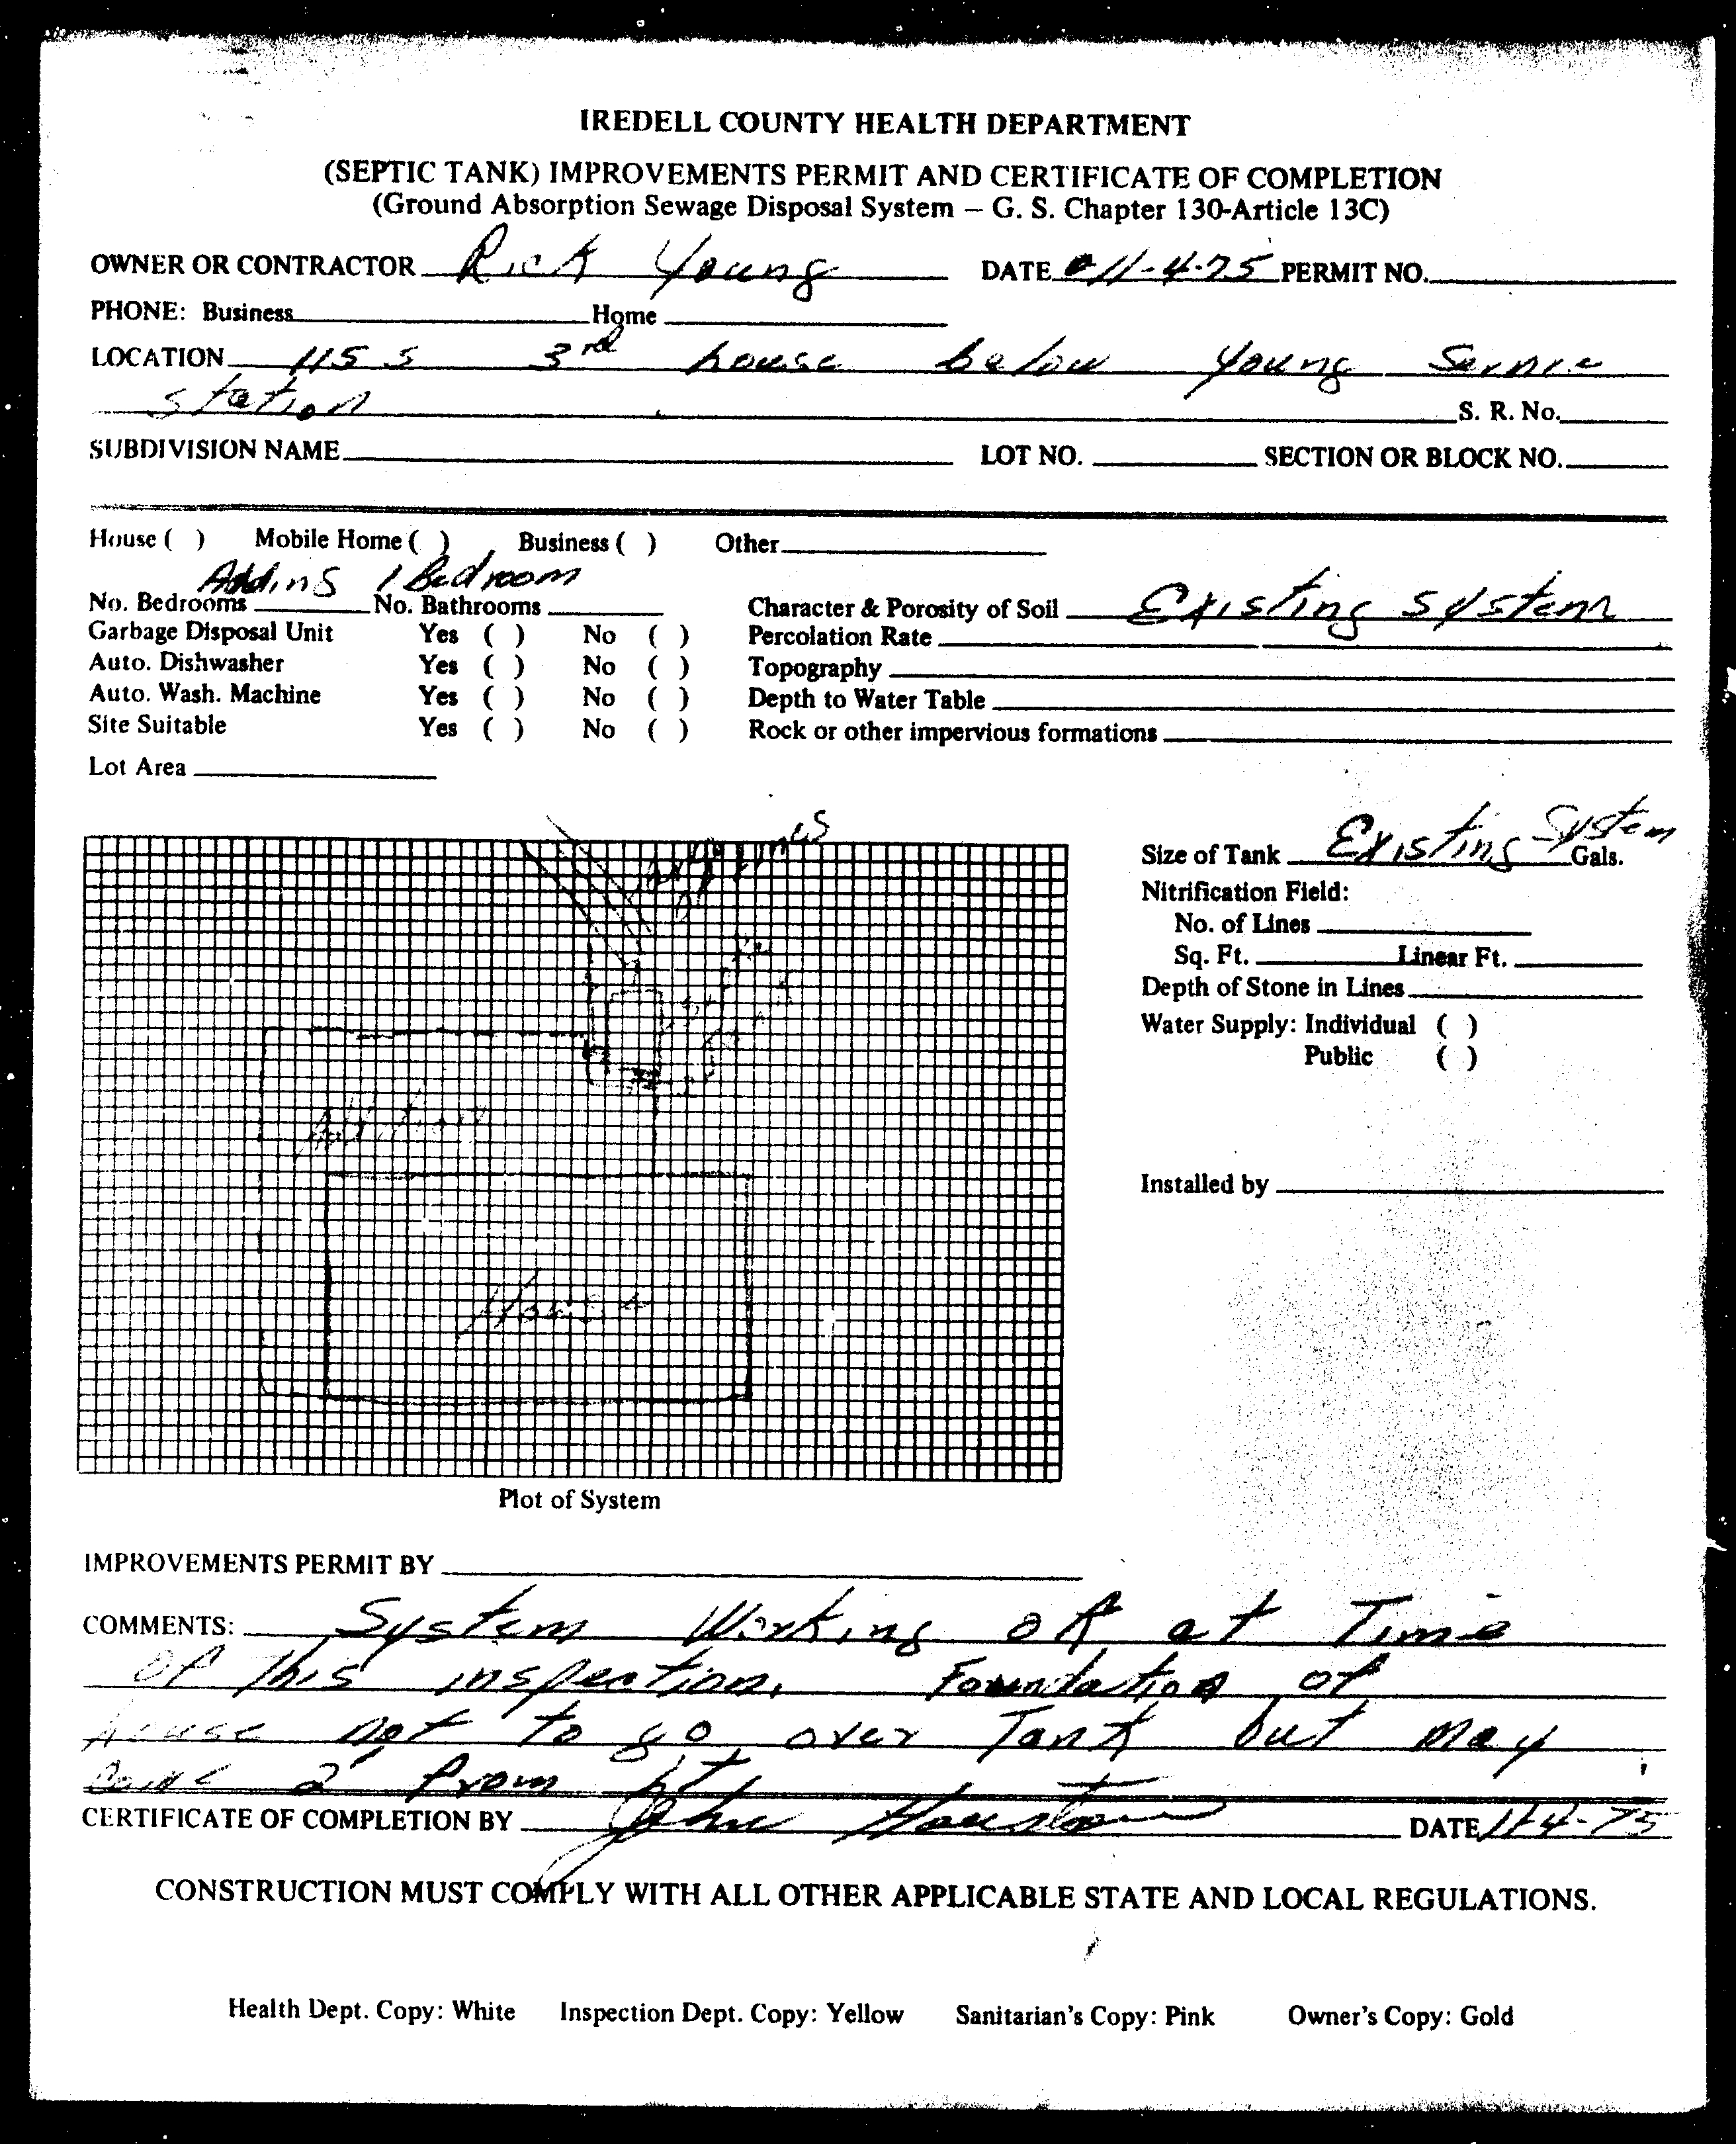 IREDELL COUNTY HEALTH DEPARTMENT
(SEPTIC TANK) IMPROVEMENTS PERMIT AND CERTIFICATE OF COMPLETION
(Ground Absorption Sewage Disposal System – G. S. Chapter 130-Article 13C)
OWNER OR CONTRACTOR Rick Young DATE 11-4-75 PERMIT NO.
PHONE: Business Home
LOCATION 115 S 3rd house below Young Service
station S. R. No.
SUBDIVISION NAME LOT NO. SECTION OR BLOCK NO.
House ( ) Mobile Home ( ) Business ( ) Other
Adding 1 Bedroom
No. Bedrooms No. Bathrooms Character & Porosity of Soil Existing system
Garbage Disposal Unit Yes ( ) No ( ) Percolation Rate
Auto. Dishwasher Yes ( ) No ( ) Topography
Auto. Wash. Machine Yes ( ) No ( ) Depth to Water Table
Site Suitable Yes ( ) No ( ) Rock or other impervious formations
Lot Area
Size of Tank Existing System Gals.
Nitrification Field:
No. of Lines
Sq. Ft. Linear Ft.
Depth of Stone in Lines
Water Supply: Individual ( )
Public ( )
Addition
Installed by
House
Plot of System
IMPROVEMENTS PERMIT BY
COMMENTS: System Working OK at Time
Of This inspection. Foundation of
house not to go over Tank but may
2' from it
CERTIFICATE OF COMPLETION BY John Houston DATE 11-4-75
CONSTRUCTION MUST COMPLY WITH ALL OTHER APPLICABLE STATE AND LOCAL REGULATIONS.
Health Dept. Copy: White Inspection Dept. Copy: Yellow Sanitarian's Copy: Pink Owner's Copy: Gold